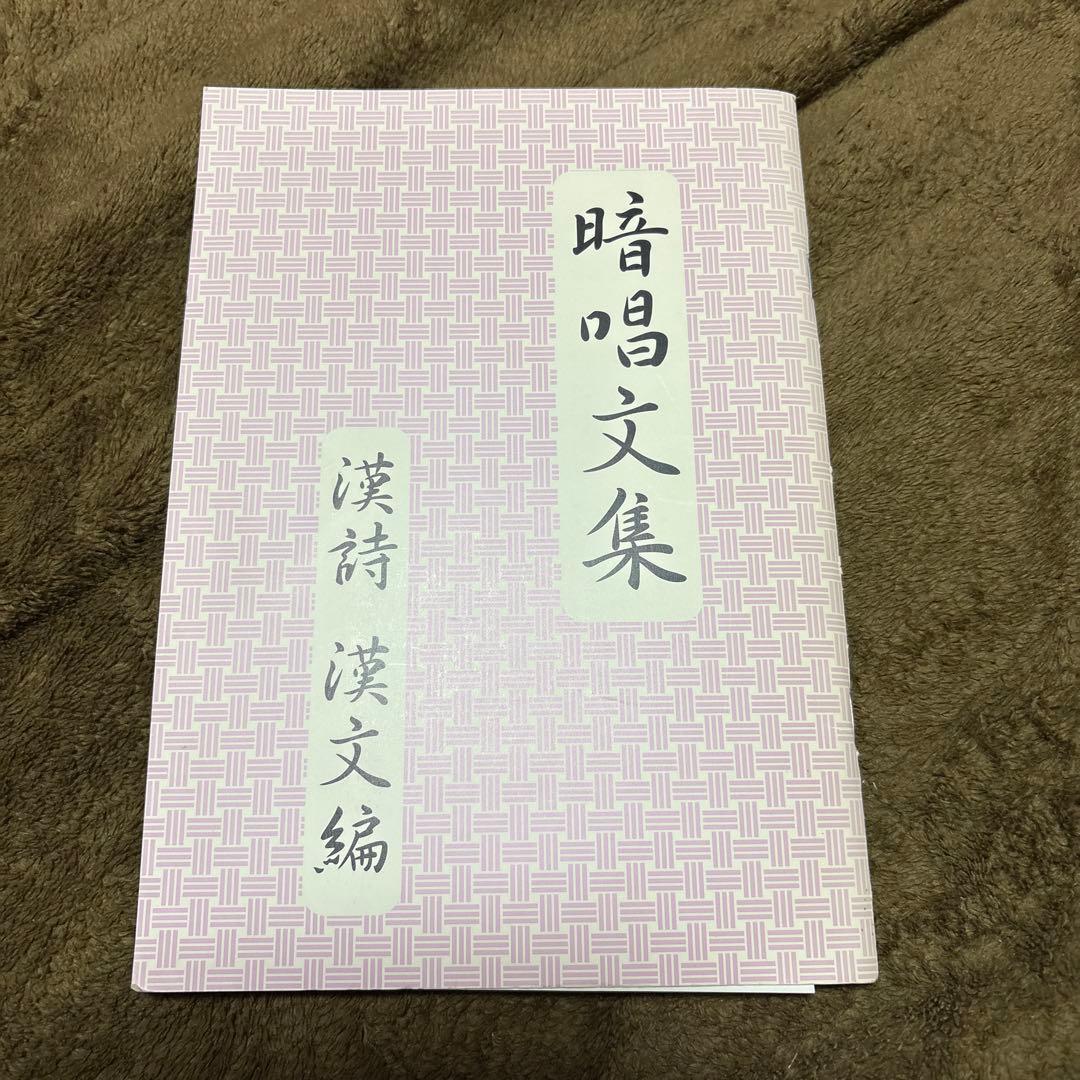 暗唱文集
漢詩 漢文編